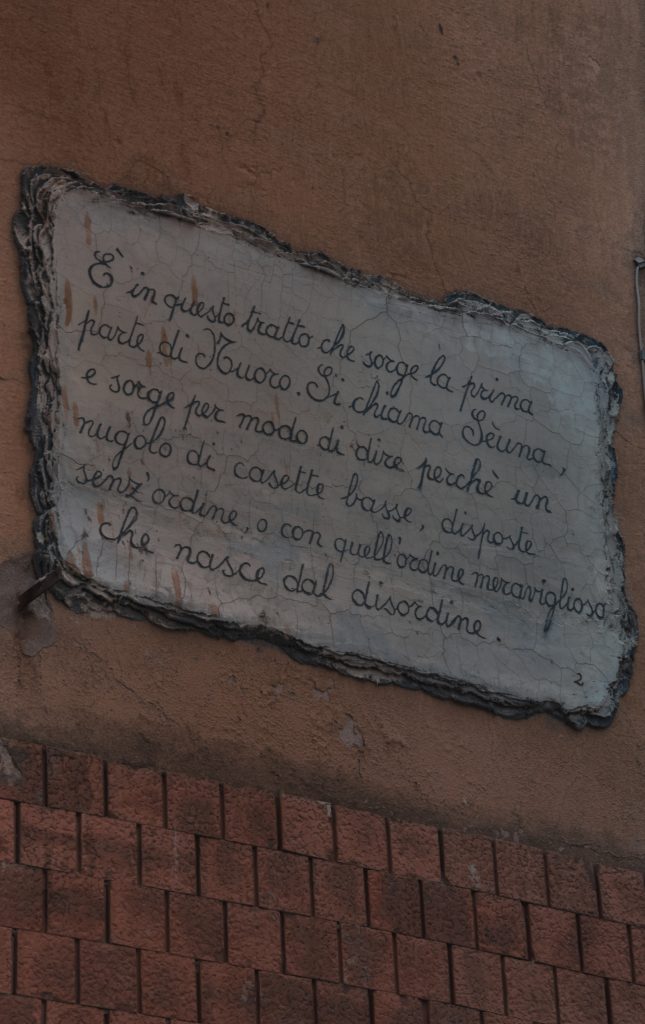 È in questo tratto che sorge la prima
parte di Nuoro. Si chiama Sèuna,
e sorge per modo di dire perchè un
nugolo di casette basse, disposte
senz'ordine, o con quell'ordine meraviglioso
che nasce dal disordine.
2